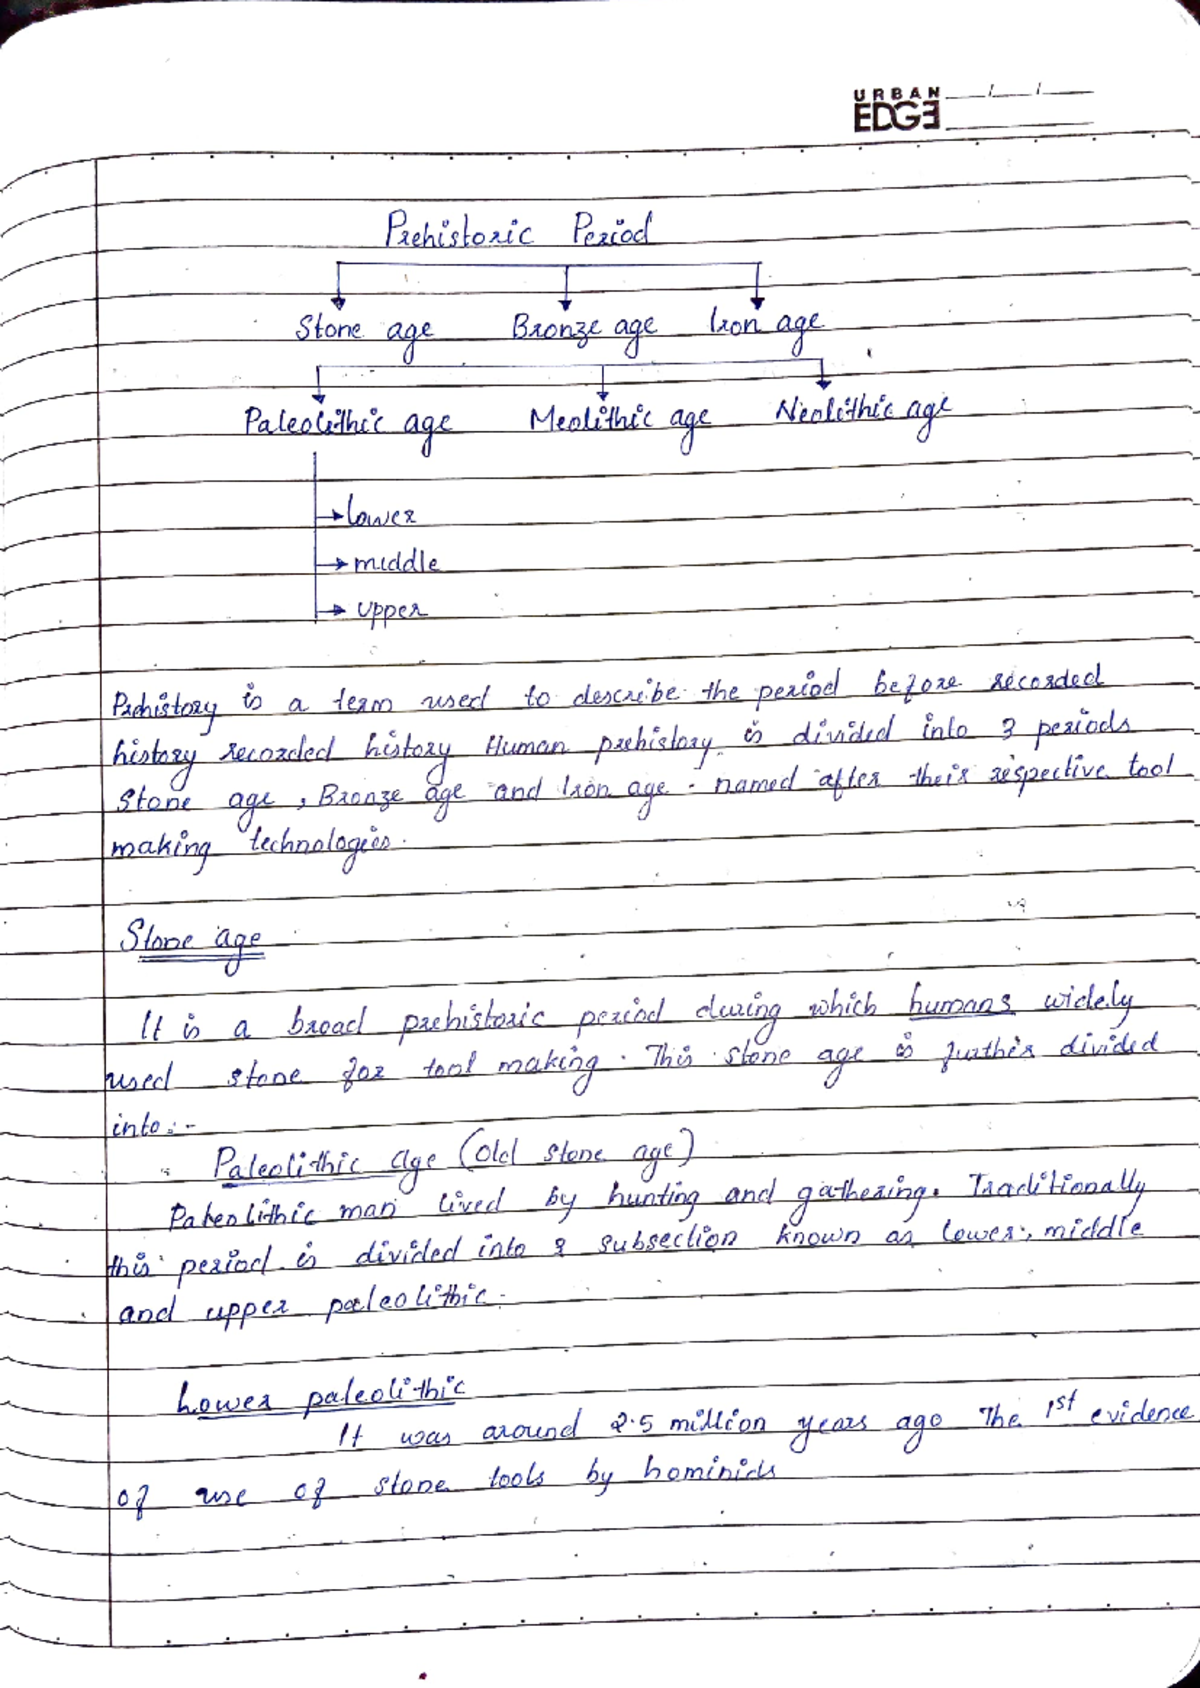 URBAN
EDGE
Prehistoric Period
Stone age Bronze age Iron age
Paleolithic age Meolithic age Neolithic age
lower
middle
upper
Prehistory is a term used to describe the period before recorded
history recorded history Human prehistory is divided into 3 periods
Stone age, Bronze age and Iron age. named after their respective tool
making technologies.
Stone age
It is a broad prehistoric period during which humans widely
used stone for tool making. This stone age is further divided
into:-
Paleolithic Age (Old stone age)
Paleolithic man lived by hunting and gathering. Traditionally
this period is divided into 3 subsection known as lower, middle
and upper paleolithic.
Lower paleolithic
It was around 2.5 million years ago The 1st evidence
of use of stone tools by hominids